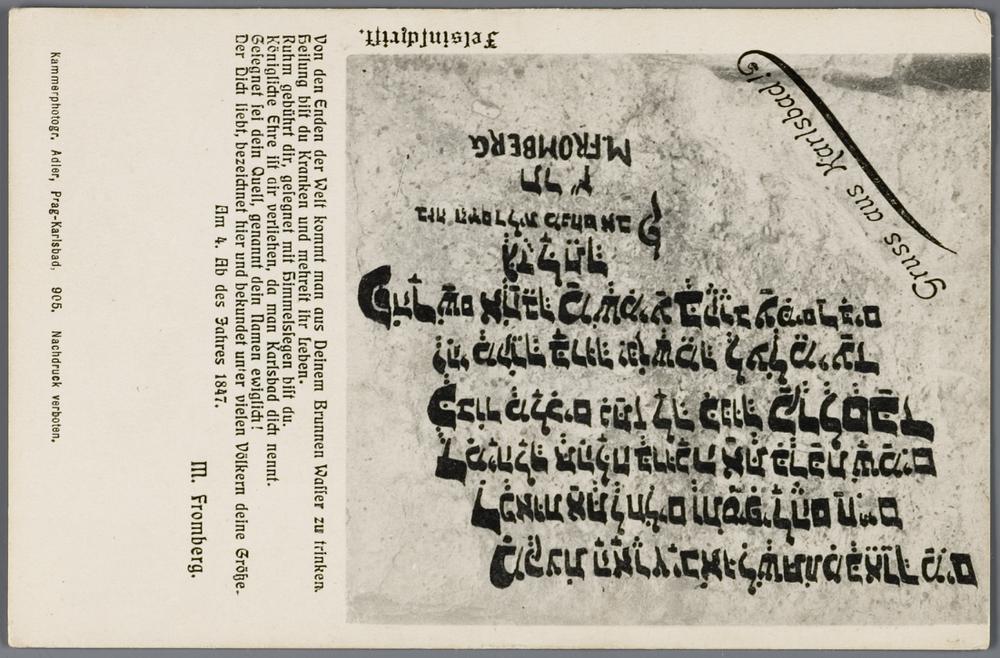 Gruss aus Karlsbad!
מִקְצוֹת הָאָרֶץ יָבֹאוּ לִשְׁתּוֹת מִבְּאֵרֵךְ מַיִם
אַתְּ לַחֹלִים וְתוֹסִיפִי לָהֶם חַיִּים
תְהִלָּה בְּרוּכָה אַתְּ בְּבִרְכַּת שָׁמַיִם
כְּבוֹד מְלָכִים נִתַּן לָךְ קַרְלְסְבַּד
יְהִי מְקוֹרֵךְ בָּרוּךְ שְׁמֵךְ עַד
עַמִּים רַבִּים
גְּדֻלָּתֵךְ
M.FROMBERG
Felsinschrift.
Von den Enden der Welt kommt man aus Deinem Brunnen Wasser zu trinken.
Heilung bist du Kranken und mehrest ihr Leben.
Ruhm gebührt dir, gesegnet mit Himmelssegen bist du.
Königliche Ehre ist dir verliehen, da man Karlsbad dich nennt.
Gesegnet sei dein Quell, genannt dein Namen ewiglich!
Der Dich liebt, bezeichnet hier und bekundet unter vielen Völkern deine Größe.
Am 4. Ab des Jahres 1847.
M. Fromberg.
Kammerphotogr. Adler, Prag-Karlsbad, 905. Nachdruck verboten.